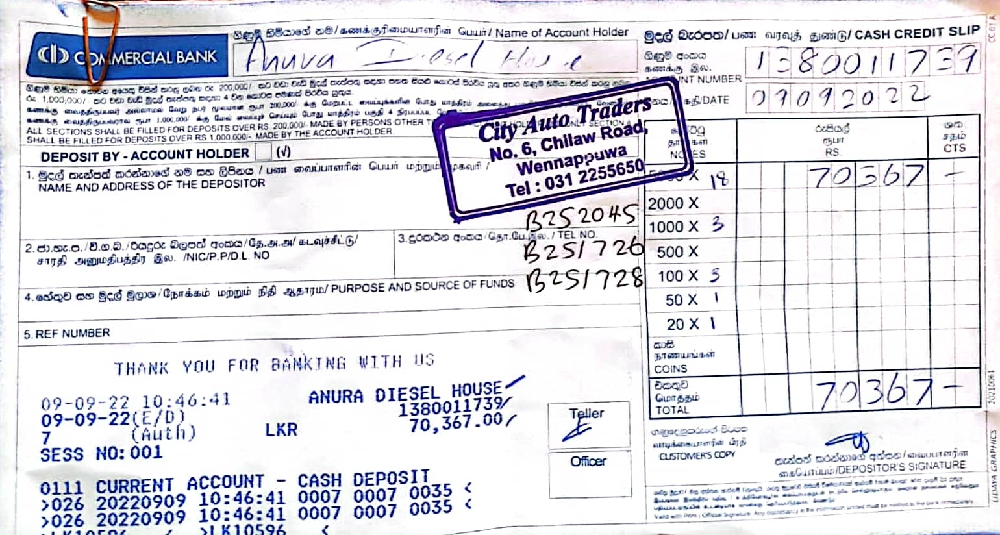 COMMERCIAL BANK
ගිණුම් හිමියාගේ නම/கணக்குரிமையாளரின் பெயர்/ Name of Account Holder
Anura Diesel House
මුදල් බැරපත/ பண வரவுத் துண்டு/ CASH CREDIT SLIP
ගිණුම් අංකය
கணக்கு இல.
ACCOUNT NUMBER
1380011739
/DATE
09092022
ALL SECTIONS SHALL BE FILLED FOR DEPOSITS OVER RS. 200,000/- MADE BY PERSONS OTHER
SHALL BE FILLED FOR DEPOSITS OVER RS 1,000,000/- MADE BY THE ACCOUNT HOLDER
DEPOSIT BY - ACCOUNT HOLDER (√)
City Auto Traders
No. 6, Chilaw Road,
Wennappuwa
Tel : 031 2255650
1. මුදල් තැන්පත් කරන්නාගේ නම සහ ලිපිනය / பண வைப்பாளரின் பெயர் மற்றும் முகவரி /
NAME AND ADDRESS OF THE DEPOSITOR
NOTES
රුපියල්
ரூபா
RS.
ශත
சதம்
CTS
X 18
70367 -
2000 X
1000 X 3
500 X
100 X 3
50 X 1
20 X 1
කාසි
நாணயங்கள்
COINS
එකතුව
மொத்தம்
TOTAL
70367 -
B252045
B251726
B251728
2. ජා.හැ.ප. / වි.ග.බ. / රියදුරු බලපත් අංකය/தே.அ.அ/ கடவுச்சீட்டு/
சாரதி அனுமதிபத்திர இல. /NIC/P.P/D.L. NO
3. දුරකථන අංකය/தொ.பே.இல./ TEL NO.
4. හේතුව සහ මුදල් මූලාශ්‍ර/நோக்கம் மற்றும் நிதி ஆதாரம்/ PURPOSE AND SOURCE OF FUNDS
5. REF NUMBER
THANK YOU FOR BANKING WITH US
09-09-22 10:46:41 ANURA DIESEL HOUSE
09-09-22(E/D) 1380011739
7 (Auth) LKR 70,367.00
SESS NO:001
0111 CURRENT ACCOUNT - CASH DEPOSIT
>026 20220909 10:46:41 0007 0007 0035 <
>026 20220909 10:46:41 0007 0007 0035 <
>LK10596 < >LK10596 <
Teller
Officer
වාඩிக்கையாளரின் பிரதி
CUSTOMER'S COPY
තැන්පත් කරන්නාගේ අත්සන/வைப்பாளரின்
கையொப்பம்/DEPOSITOR'S SIGNATURE